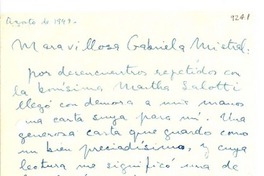 Agosto de 1949 -
9241
Maravillosa Gabriela Mistral:
por desencuentros repetidos con
la bonísima Martha Salotti
llegó con demora a mis manos
una carta suya para mí. Una
generosa carta que guardo como
un bien preciadísimo, y cuya
lectura me significó una de